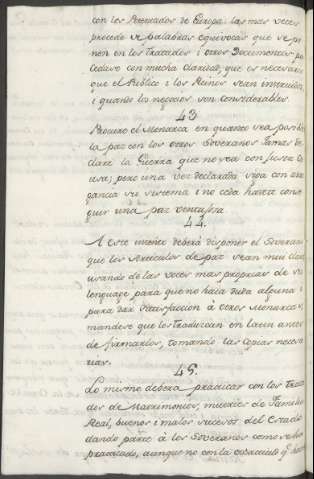 con los Potentados de Europa: las mas veces
procede de palabras equivocas que se po
nen en los Tratados i otros Documentos pu
blicos con mucha claridad, que es necesario
que el Publico i los Reinos sean instruidos,
i quando los negocios son considerables
43
Procure el Monarca en quanto sea posible
la paz con los otros Soberanos Jamas de
clare la Guerra que no sea con justa Ca
usa; pero una vez declarada siga con arro
gancia su sistema i no ceda hasta conse
guir una paz ventajosa.
44.
A este intento deberá disponer el Soberano
que los Articulos de paz sean mui claros
usando de las voces mas proprias de su
lenguage para que no haia duda alguna i
para dar satisfaccion à otros Monarcas
mandese que los Traduzcan en latin antes
de firmarlos, tomando las copias necesa
rias.
45.
Lo mismo deberá practicar con los Trata
dos de Matrimonios, muertes de Familia
Real, buenos i malos sucesos del Estado
dando parte à los Soberanos como se ha
practicado, aunque no con la